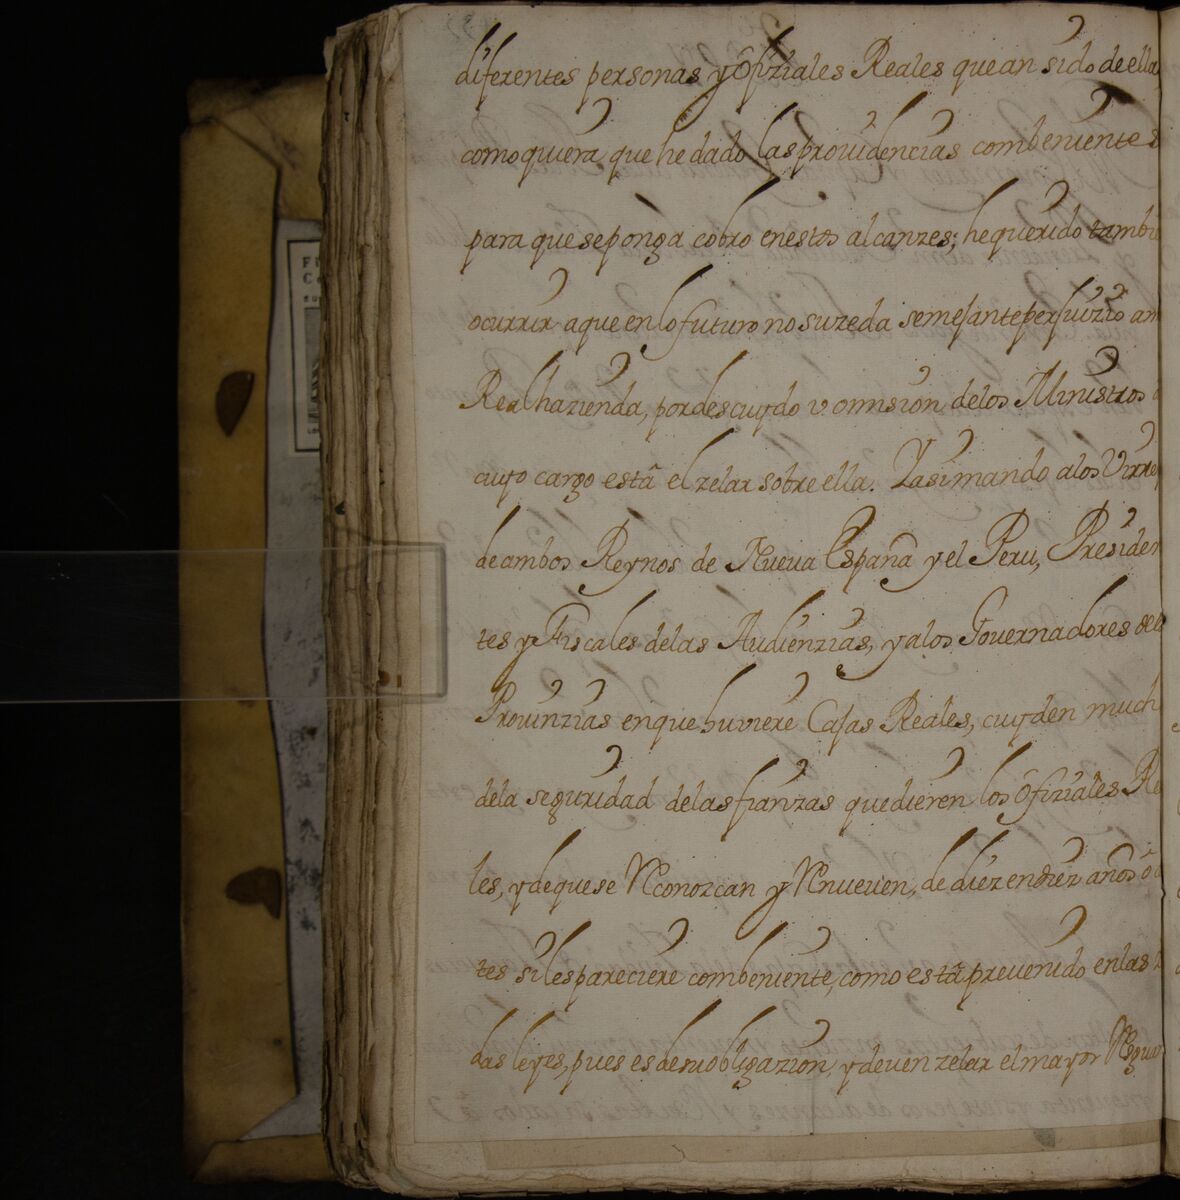 diferentes personas y Ofiziales Reales que an sido de ella,
como quiera que he dado las prouidencias combenientes
para que se ponga cobro en estos alcanzes; he querido tambie
ocurrir a que en lo futuro no suzeda semejante perjuizio a mi
Real hazienda, por descuydo v omision de los Ministros
cuyo cargo està el zelar sobre ella. Y asi mando a los Virre
de ambos Reynos de Nueua España y el Peru, Presiden
tes y Fiscales de las Audienzias, y a los Gouernadores de
Prouinzias en que huviere Cajas Reales, cuyden much
de la seguridad de las fianzas que dieren los Ofiziales Re
les, y de que se Reconozcan y Renueuen, de diez en diez años ò
tes si les pareciere combeniente, como està preuenido en las
das leyes, pues es de su obligazion y deuen zelar el mayor